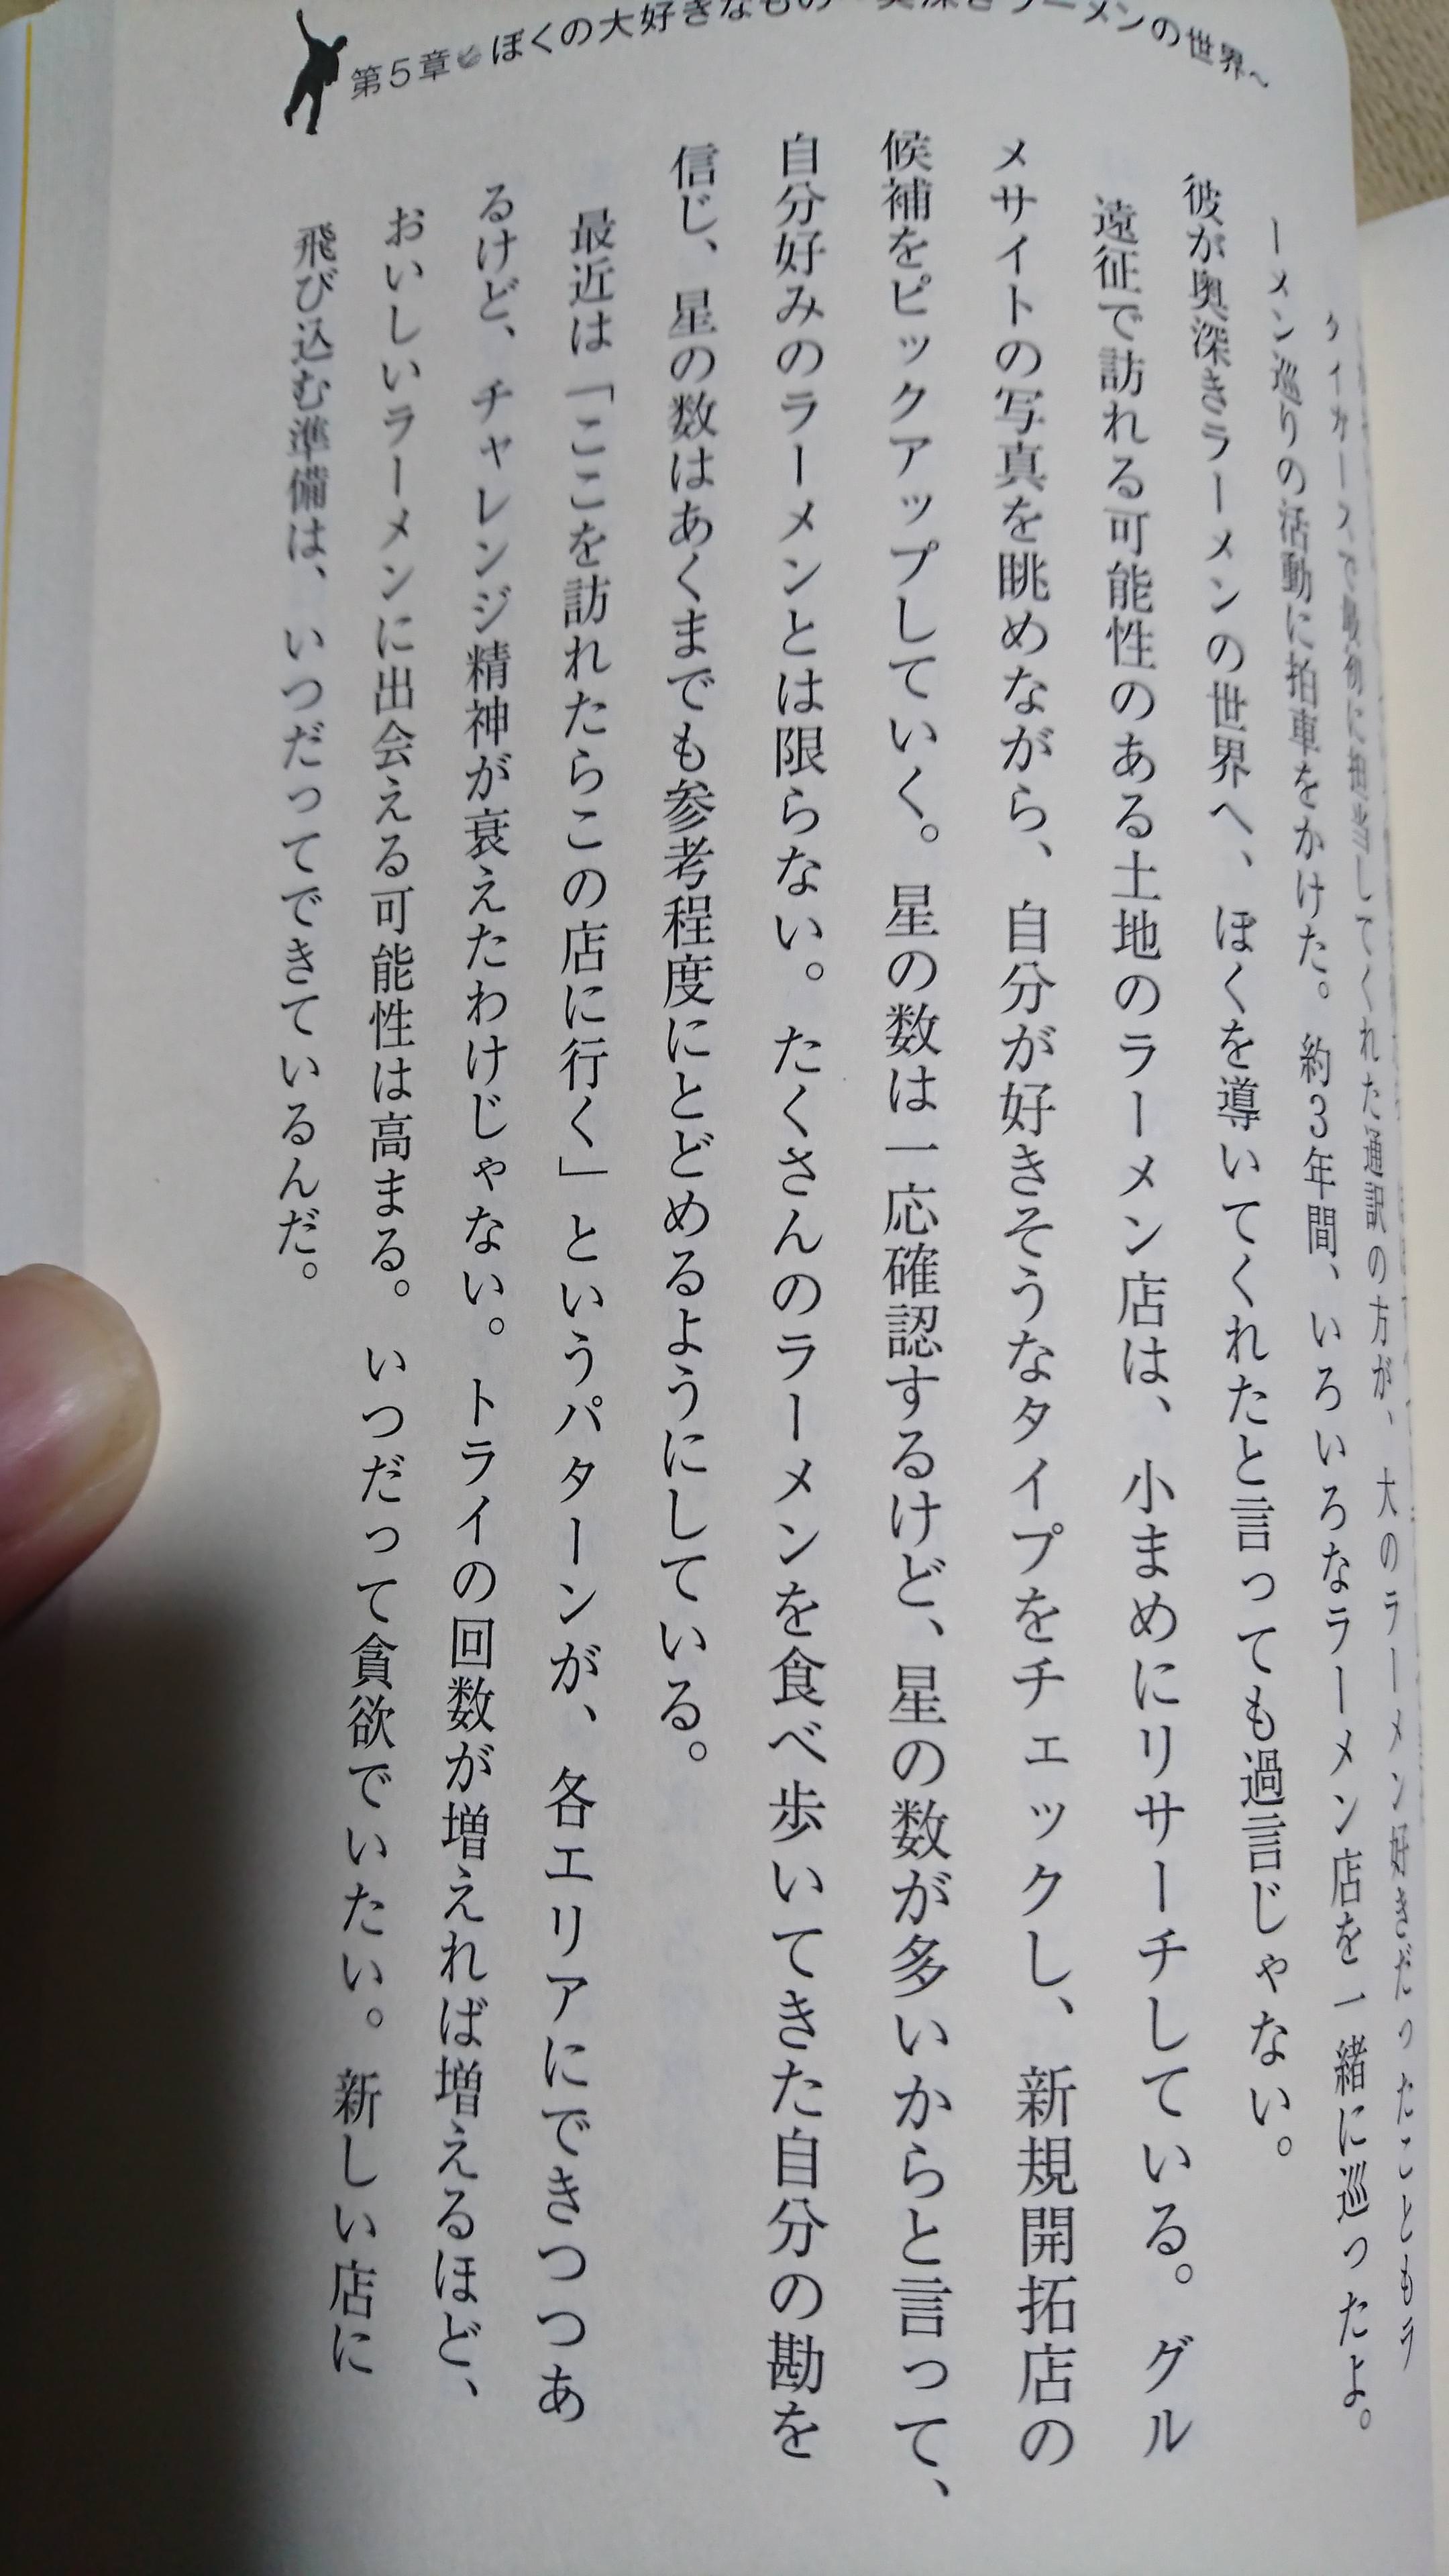 第5章 ぼくの大好きなもの 奥深きラーメンの世界へ
タイガースで最初に担当してくれた通訳の方が、大のラーメン好きだったこともラ
ーメン巡りの活動に拍車をかけた。約3年間、いろいろなラーメン店を一緒に巡ったよ。
彼が奥深きラーメンの世界へ、ぼくを導いてくれたと言っても過言じゃない。
遠征で訪れる可能性のある土地のラーメン店は、小まめにリサーチしている。グル
メサイトの写真を眺めながら、自分が好きそうなタイプをチェックし、新規開拓店の
候補をピックアップしていく。星の数は一応確認するけど、星の数が多いからと言って、
自分好みのラーメンとは限らない。たくさんのラーメンを食べ歩いてきた自分の勘を
信じ、星の数はあくまでも参考程度にとどめるようにしている。
最近は「ここを訪れたらこの店に行く」というパターンが、各エリアにできつつあ
るけど、チャレンジ精神が衰えたわけじゃない。トライの回数が増えれば増えるほど、
おいしいラーメンに出会える可能性は高まる。いつだって貪欲でいたい。新しい店に
飛び込む準備は、いつだってできているんだ。